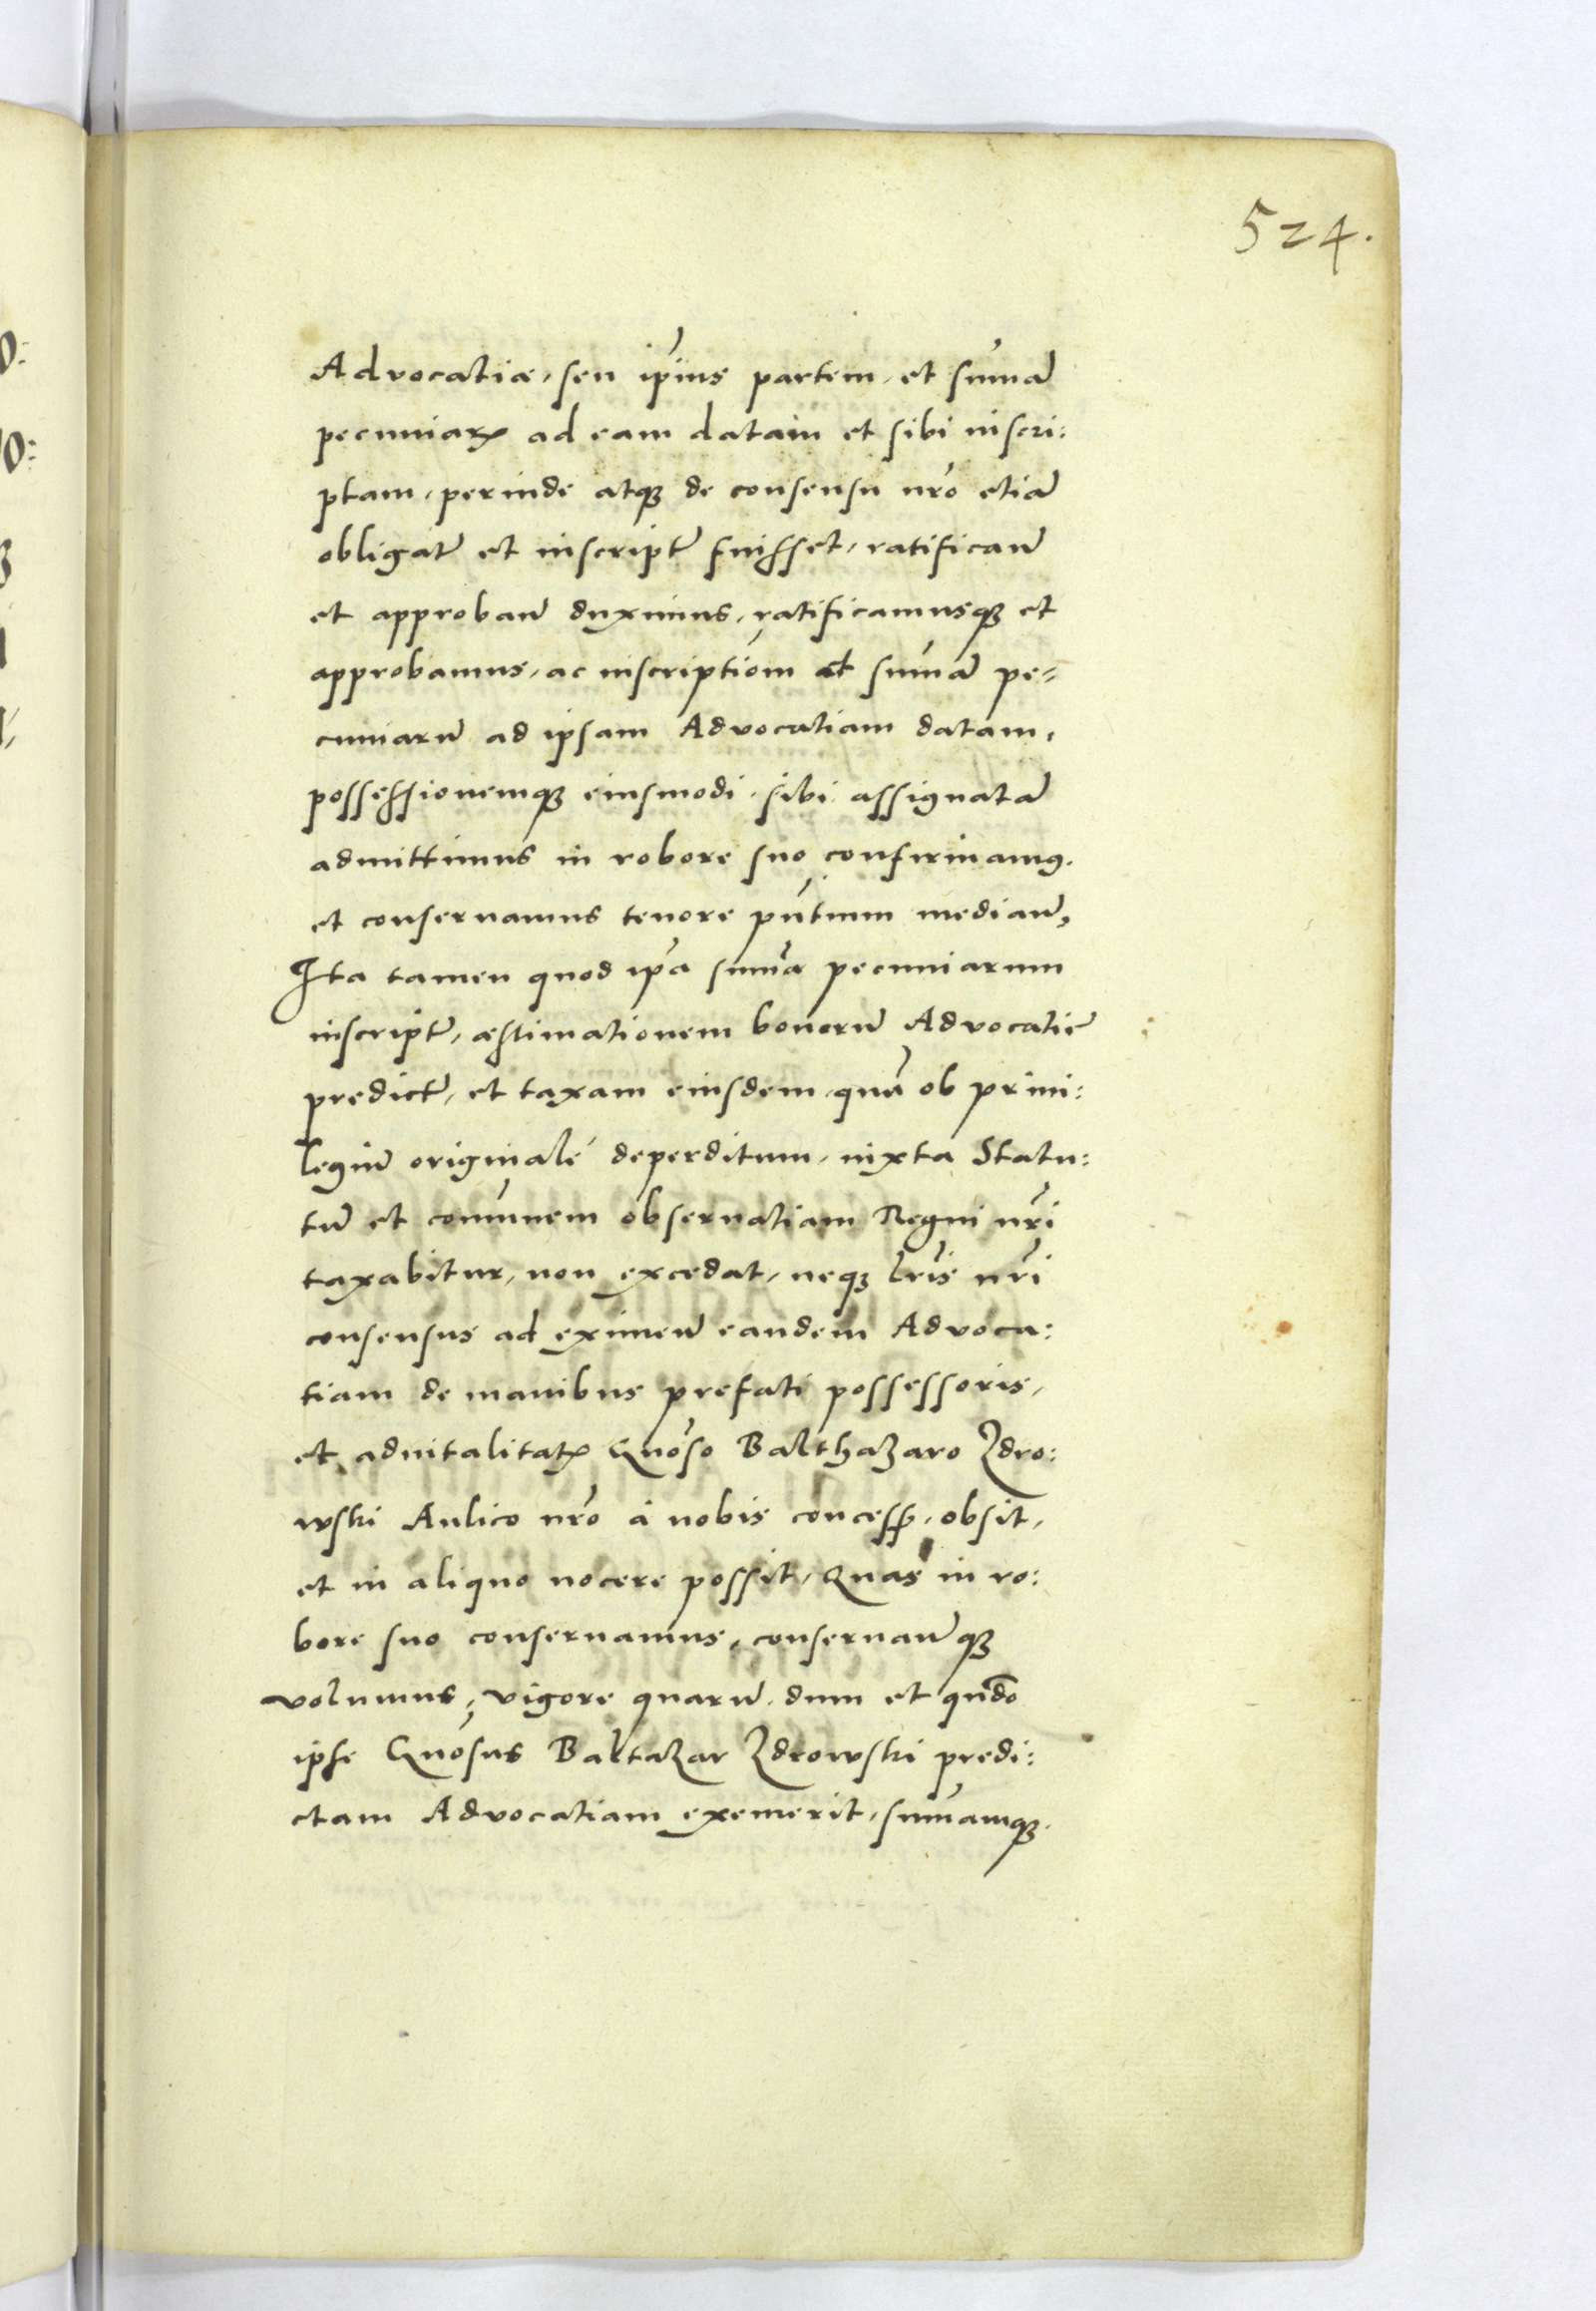 524.
Advocatiæ, seu ip̃ius partem, et sum̃ã
pecuniarꝝ ad eam datam et sibi inscri:
ptam, perinde atqꝫ de consensu nr̃o etiã
obligat̃ et inscript̃ fuisset, ratificand̃
et approband̃ duximus, ratificamusqꝫ et
approbamus, ac inscriptiõm et sum̃ã pe⸗
cuniarũ ad ipsam Advocatiam datam,
possessionemqꝫ eiusmodi sibi assignatã
admittimus in robore suo confirmamꝰ.
et conseruamus tenore pñtium median̄,
Ita tamen quod ip̃a sum̃a pecuniarum
inscript̃, æstimationem bonorũ Advocatiẽ
predict̃, et taxam eiusdem, quã ob priui:
legiũ originale deperditum, iuxta Statu:
tũ et com̃unem obseruatiam Regni nr̃i
taxabitur, non excedat, neqꝫ lr̃is nr̃i
consensus ad eximend̃ eandem Advoca:
tiam de manibus prefati possessoris,
et aduitalitatꝭ Gnõso Balthazaro Zdro:
wski Aulico nr̃o à nobis concess̃, obsit,
et in aliquo nocere possit, Quas in ro:
bore suo conseruamus, conseruariqꝫ
volumus, vigore quarũ, dum et qñdo
ipse Gnõsus Baltazar Zdrowski predi:
ctam Advocatiam exemerit, sum̃amqꝫ.